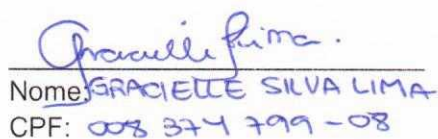 Gracielle Lima.
Nome: GRACIELLE SILVA LIMA
CPF: 008 374 799 - 08